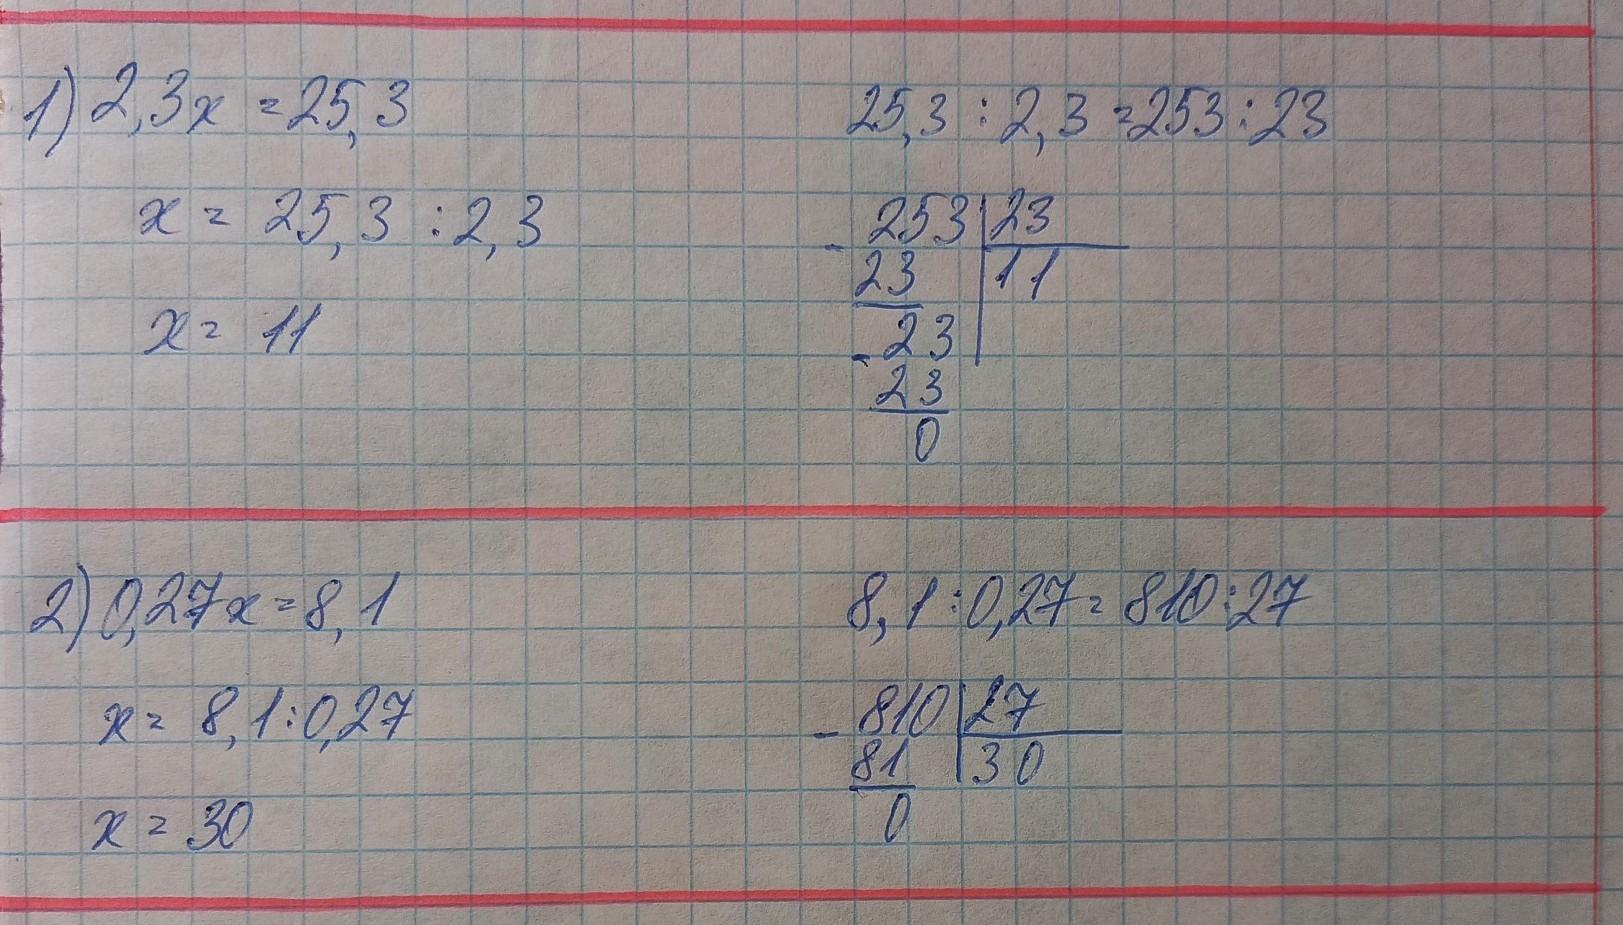 1) 2,3x = 25,3
x = 25,3 : 2,3
x = 11
25,3 : 2,3 = 253 : 23
- 253 | 23
23 | 11
- 23
23
0
2) 0,27x = 8,1
x = 8,1 : 0,27
x = 30
8,1 : 0,27 = 810 : 27
- 810 | 27
81 | 30
0